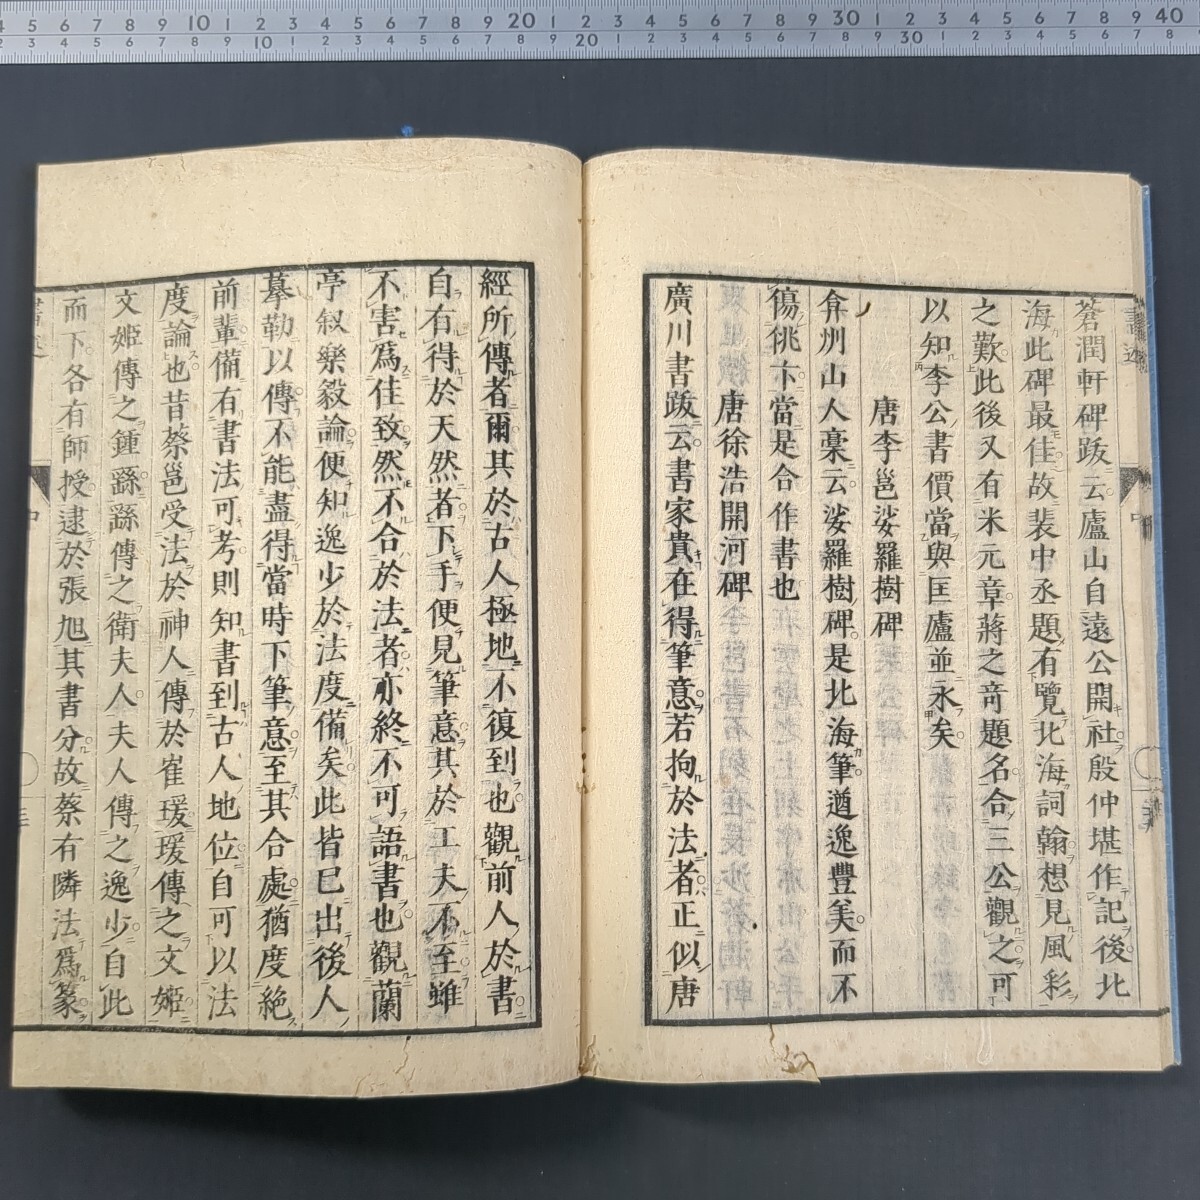 蒼潤軒碑跋云廬山自遠公開社殷仲堪作記後北
海此碑最佳故裴中丞題有覽北海詞翰想見風彩
之歎此後又有米元章蔣之奇題名合三公觀之可
以知李公書價當與匡廬並永矣
唐李邕娑羅樹碑
弇州山人稾云娑羅樹碑是北海筆遒逸豊美而不
傷佻卞當是合作書也
唐徐浩開河碑
廣川書跋云書家貴在得筆意若拘於法者正似唐
經所傳者爾其於古人極地不復到也觀前人於書
自有得於天然者下手便見筆意其於工夫不至雖
不害爲佳致然不合於法者亦終不可語書也觀蘭
亭叙樂毅論便知逸少於法度備矣此皆已出後人
摹勒以傳不能盡得當時下筆意至其合處猶度絶
前輩備有書法可考則知書到古人地位自可以法
度論也昔蔡邕受法於神人傳於崔瑗瑗傳之文姬
文姬傳之鍾繇繇傳之衛夫人夫人傳之逸少自此
而下各有師授逮於張旭其書分故蔡有隣法爲篆